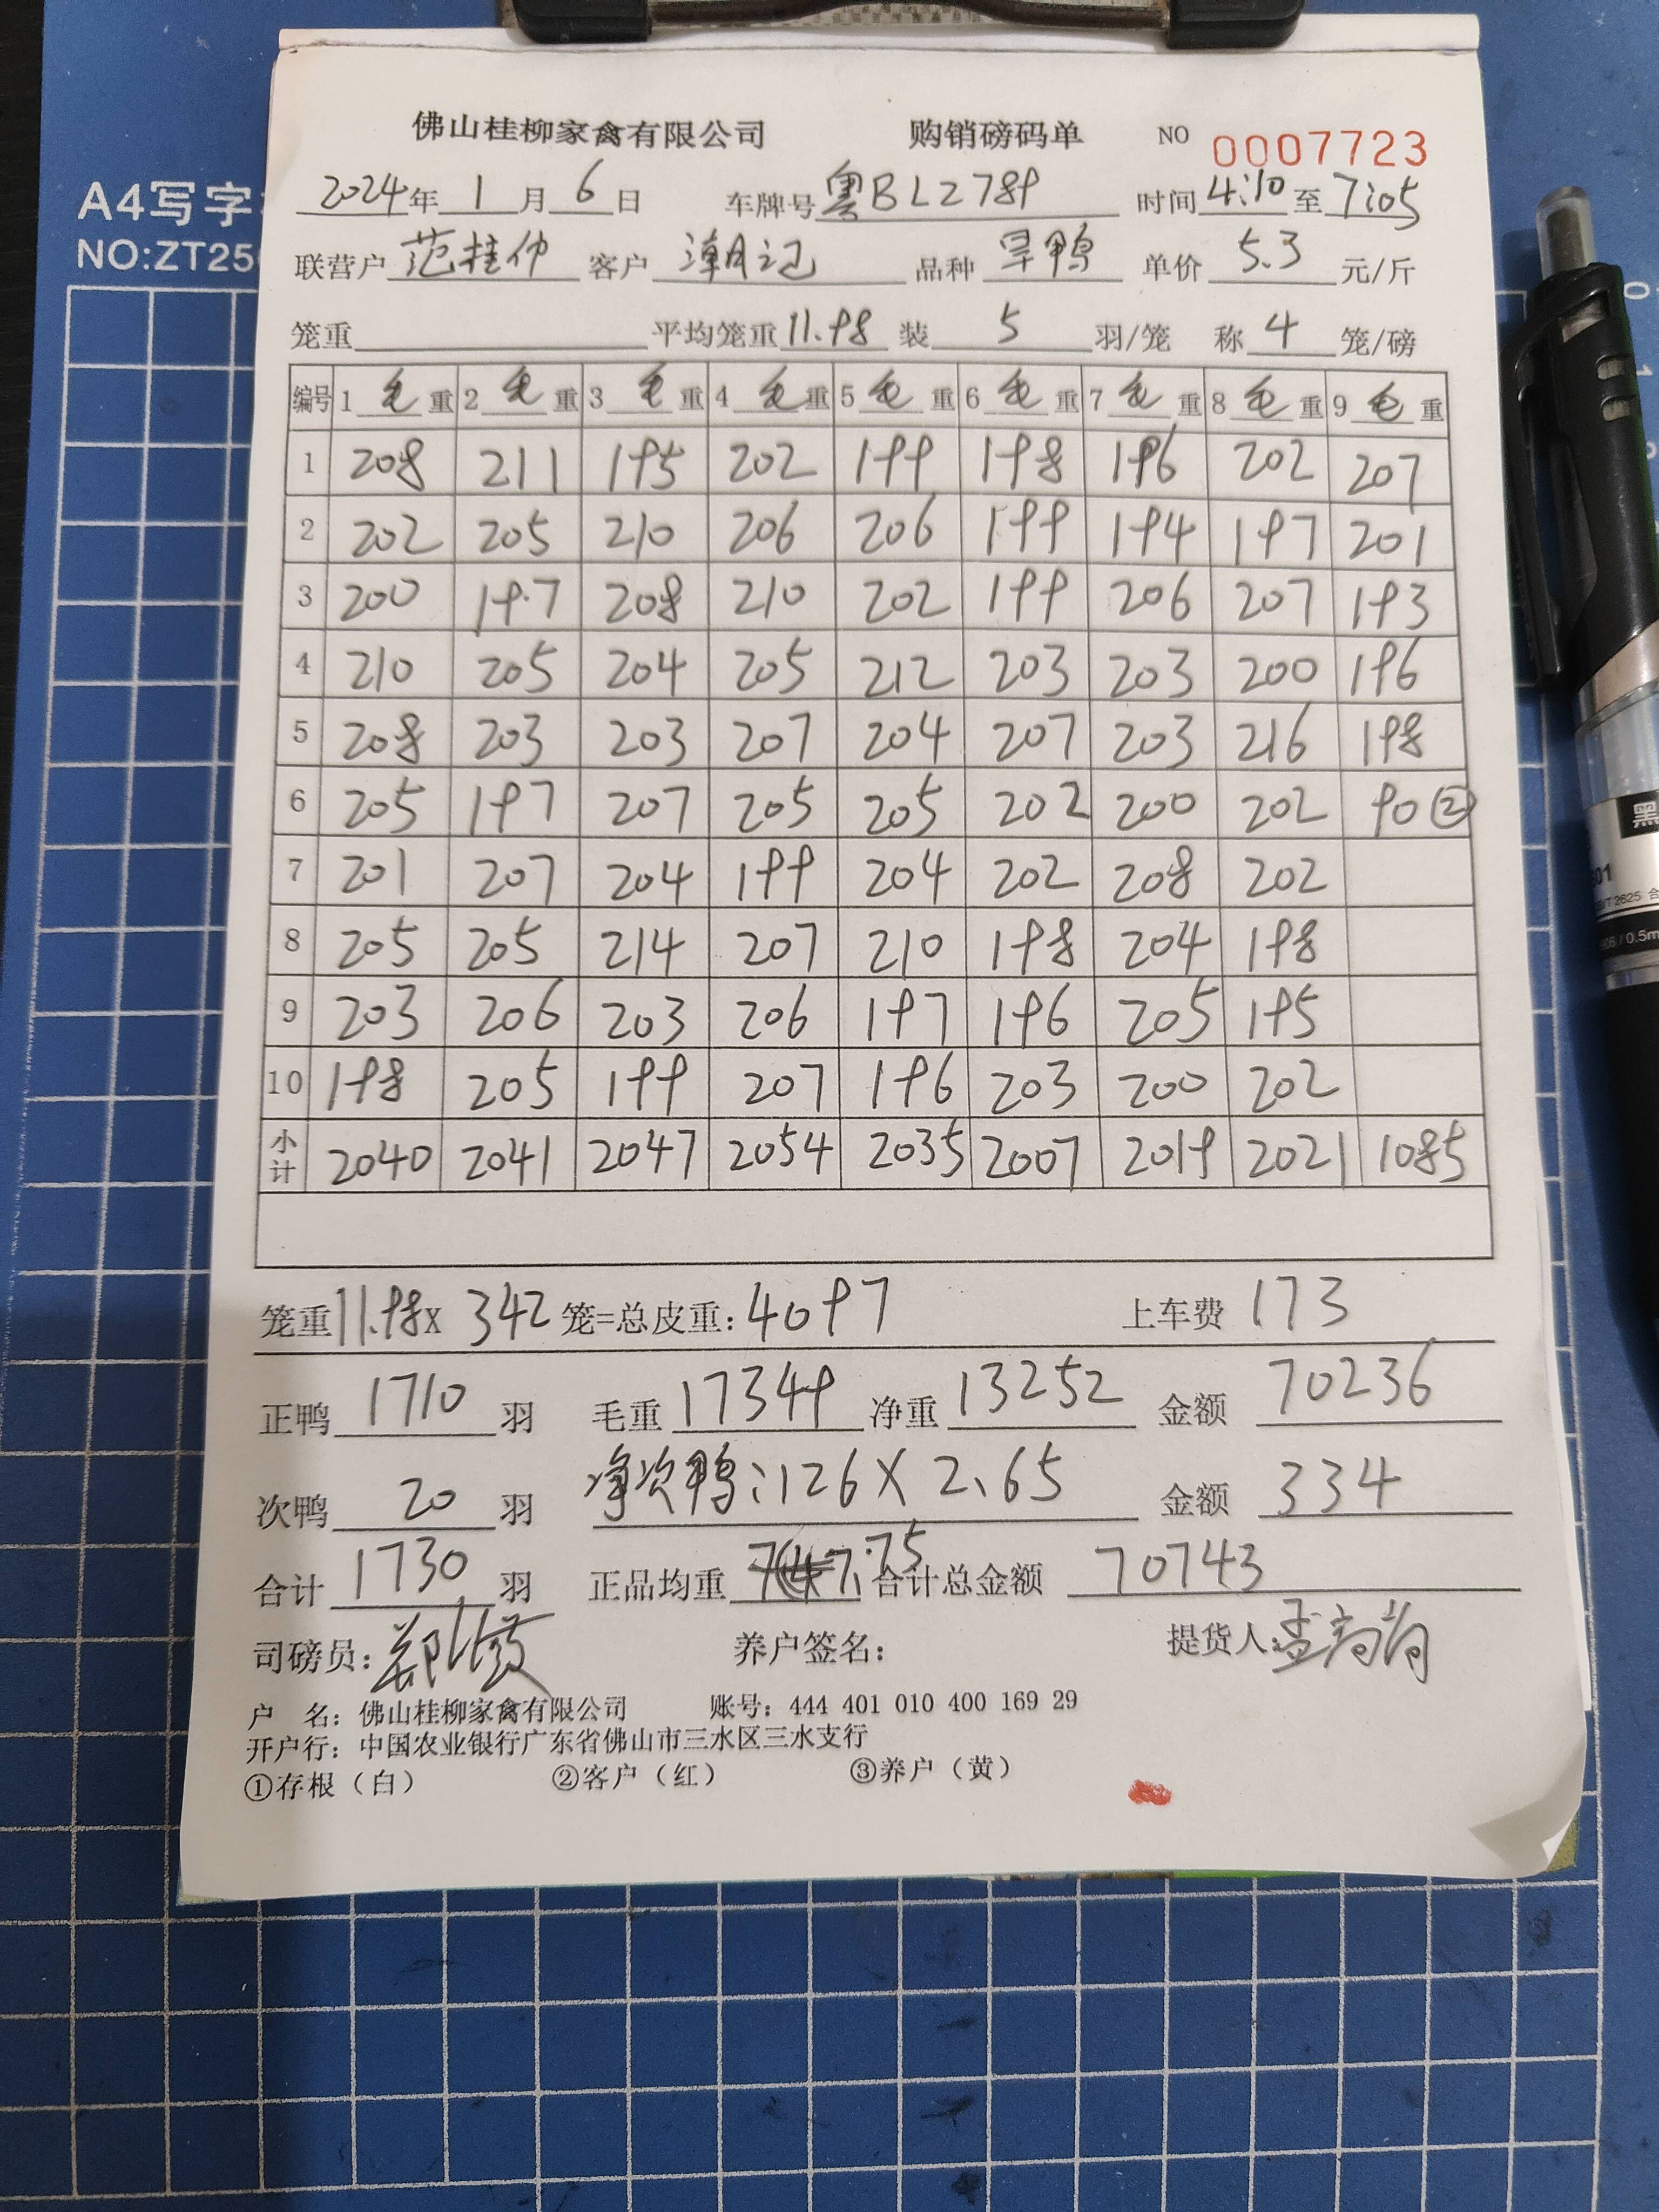 佛山桂柳家禽有限公司 购销磅码单 NO 0007723
2024年 1 月 6 日 车牌号 粤BLZ789 时间 4:10 至 7:05
联营户 范桂仲 客户 潮记 品种 旱鸭 单价 5.3 元/斤
笼重 平均笼重 11.98 装 5 羽/笼 称 4 笼/磅
编号 1 毛 重 2 毛 重 3 毛 重 4 毛 重 5 毛 重 6 毛 重 7 毛 重 8 毛 重 9 毛 重
1 208 211 195 202 199 198 196 202 207
2 202 205 210 206 206 199 194 197 201
3 200 19.7 208 210 202 199 206 207 193
4 210 205 204 205 212 203 203 200 196
5 208 203 203 207 204 207 203 216 198
6 205 197 207 205 205 202 200 202 90②
7 201 207 204 199 204 202 208 202
8 205 205 214 207 210 198 204 198
9 203 206 203 206 197 196 205 195
10 198 205 199 207 196 203 200 202
小计 2040 2041 2047 2054 2035 2007 2019 2021 1085
笼重 11.98 X 342 笼=总皮重: 4097 上车费 173
正鸭 1710 羽 毛重 17349 净重 13252 金额 70236
次鸭 20 羽 净次鸭:126 X 2.65 金额 334
合计 1730 羽 正品均重 7.75 合计总金额 70743
司磅员: 养户签名: 提货人:
户 名: 佛山桂柳家禽有限公司 账号: 444 401 010 400 169 29
开户行: 中国农业银行广东省佛山市三水区三水支行
①存根(白) ②客户(红) ③养户(黄)
A4写字
NO:ZT25
黑
/T 2625
/0.5m